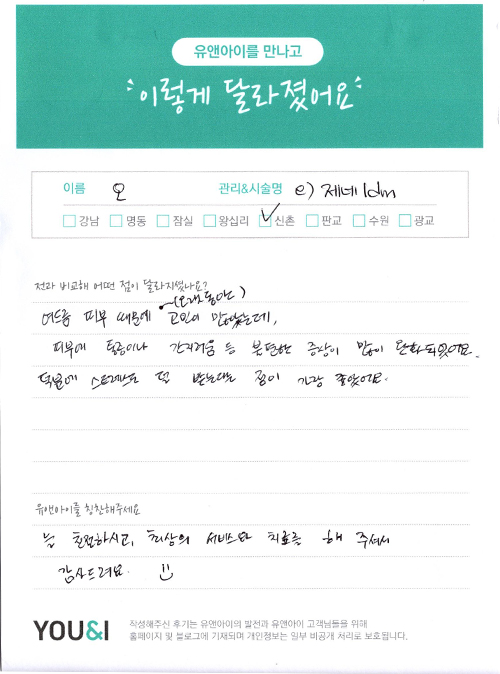 유앤아이를 만나고
이렇게 달라졌어요
이름 오 관리&시술명 e) 제네ldm
강남 명동 잠실 왕십리 신촌 판교 수원 광교
전과 비교해 어떤 점이 달라지셨나요?
(오랫동안)
여드름 피부 때문에 고민이 많았는데,
피부에 통증이나 간지러움 등 불편한 증상이 많이 완화되었어요.
덕분에 스트레스도 덜 받는다는 점이 가장 좋았어요.
유앤아이를 칭찬해주세요
늘 친절하시고, 최상의 서비스와 치료를 해 주셔서
감사드려요.
YOU&I
작성해주신 후기는 유앤아이의 발전과 유앤아이 고객님들을 위해
홈페이지 및 블로그에 기재되며 개인정보는 일부 비공개 처리로 보호됩니다.